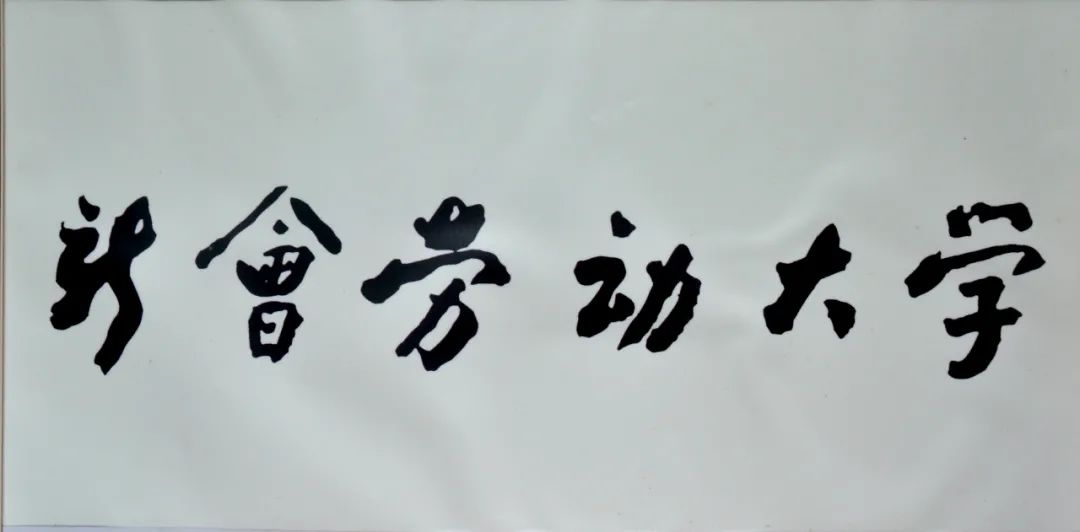 新會劳动大学